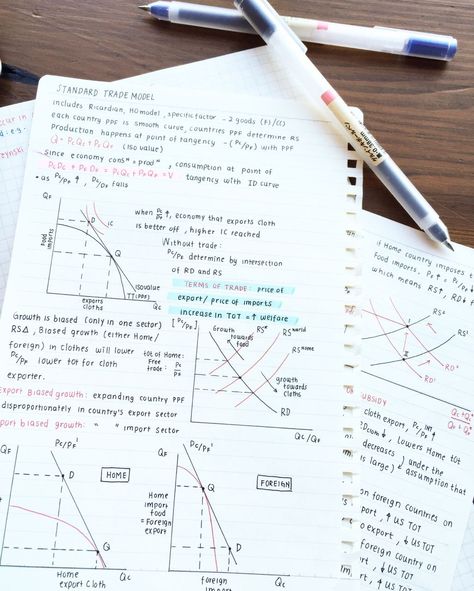 STANDARD TRADE MODEL
includes Ricardian, HO model, specific factor - 2 goods (F)/(C)
each country PPF is smooth curve, countries PPF determine RS
Production happens at point of tangency - (Pc/PF) with PPF
(Isovalue)
since economy consⁿ = prodⁿ, consumption at point of
PcDc + PFDF = PcQc + PFQF = V tangency with ID curve
• as PF/Pc ↑, Pc/PF falls
QF
Food imports
D
IC
Q
isovalue
TT (PPF)
exports cloths
when Pc/PF ↑, economy that exports cloth
is better off, higher IC reached
Without trade:
Pc/PF determine by intersection
of RD and RS
TERMS OF TRADE: price of
export / price of imports
increase in TOT = ↑ welfare
Growth is biased (only in one sector)
RSΔ, Biased growth (either Home/
foreign) in clothes will lower
Pc/PF lower tot for cloth
exporter.
tot of Home:
Free trade:
[Pc/PF]
Growth towards food
RS world
RS Home
growth towards cloths
RD
Qc/QF
Export Biased growth: expanding country PPF
disproportionately in country's export sector
import biased growth: " " import sector
QF
Pc/PF'
D
HOME
Q
Home export Cloth
Qc
Home import food = Foreign export
QF
Pc/PF'
FOREIGN
Q
D
foreign import
Qc
0.38mm
if Home country imposes
Food imports,
which means RS↑, RD↓
1
2
RD¹
RD²
SUBSIDY
cloth export, Pc/PF INT ↑
Dcom↓, Lowers Home tot
decreases) under the
is large) assumption that
on foreign countries on
port, ↑ US TOT
o export, ↓ US TOT
foreign country on
↓ US TOT
port, ↑ US TOT